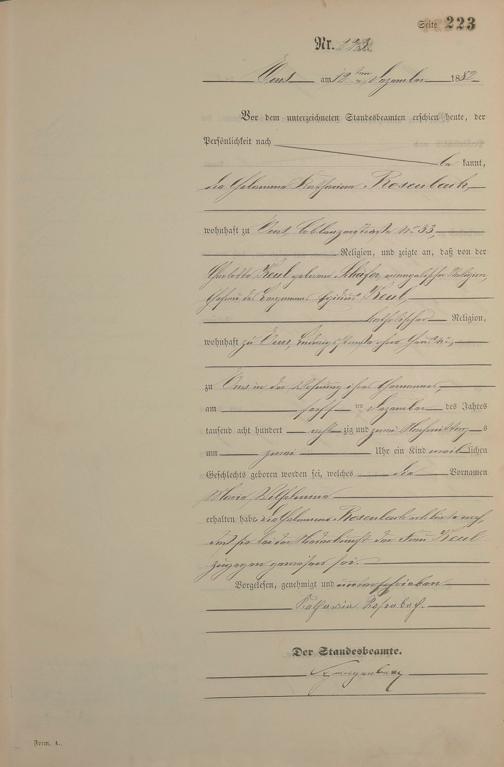 Seite 223
Nr. 223.
Ems am 12ten Dezember 1882
Vor dem unterzeichneten Standesbeamten erschien heute, der
Persönlichkeit nach
be kannt,
die Hebamme Katharina Rosenbach,
wohnhaft zu Ems, Coblenzerstraße No 33,
Religion, und zeigte an, daß von der
Keul geborene Schäfer, evangelischer Religion,
Ehefrau des Bergmanns Keul,
katholischer Religion,
wohnhaft zu Ems,
zu Ems in der Wohnung ihres Ehemannes,
am sechsten Dezember des Jahres
tausend acht hundert acht zig und zwei Nachmittag s
um zwei Uhr ein Kind weib lichen
Geschlechts geboren worden sei, welches die Vornamen
Maria Wilhelmina
erhalten habe. Die Hebamme Rosenbach erklärte noch,
daß sie bei der Niederkunft der Frau Keul
zugegen gewesen sei.
Vorgelesen, genehmigt und unterschrieben
Katharina Rosenbach.
Der Standesbeamte.
Form. A.